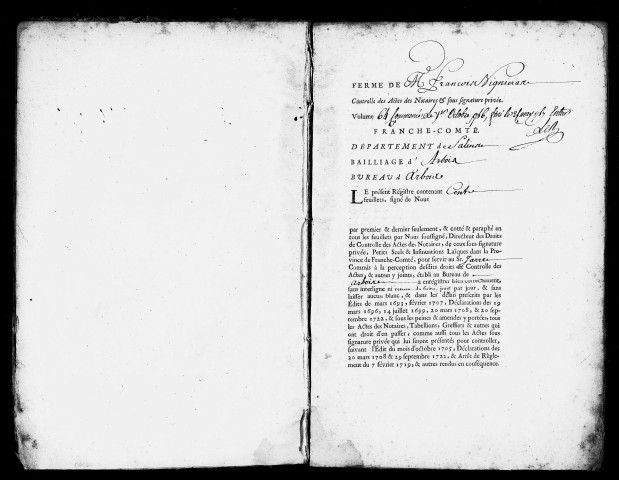 FERME DE Me François Vigneras
Controlle des Actes des Notaires & sous signature privée.
Volume 64 Commencé le 1er Octobre
FRANCHE-COMTÉ.
DÉPARTEMENT de Salins
BAILLIAGE d' Arbois
BUREAU d Arbois
LE présent Régistre contenant Cent
feuillets, signé de Nous
par premier & dernier seulement, & cotté & paraphé en
tous les feuillets par Nous soussigné, Directeur des Droits
de Controlle des Actes des Notaires, de ceux sous signature
privée, Petits Scels & Insinuations Laïques dans la Pro-
vince de Franche-Comté, pour servir au Sr. Jarre
Commis à la perception desdits droits de Controlle des
Actes, & autres y joints, établi au Bureau de
arboise à enrégistrer bien
sans interligne ni jour par jour, & sans
laisser aucun blanc, & dans les délais prescrits par les
Edits de mars 1693, février 1707, Déclarations des 19
mars 1696, 14 juillet 1699, 20 mars 1708, & 20 sep-
tembre 1722, & sous les peines & amendes y portées, tous
les Actes des Notaires, Tabellions, Greffiers & autres qui
ont droit d'en passer, comme aussi tous les Actes sous
signature privée qui lui seront présentés pour controller,
suivant l'Edit du mois d'octobre 1705, Déclarations des
20 mars 1708 & 29 septembre 1722, & Arrêt de Règle-
ment du 7 février 1719, & autres rendus en conséquence.